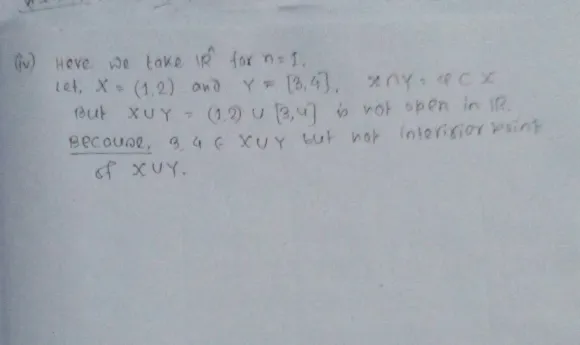 (iv) Here we take ℝⁿ for n=1.
Let, X = (1,2) and Y = [3,4], X∩Y = φ ⊂ X
But X∪Y = (1,2) ∪ [3,4] is not open in ℝ.
Because, 3,4 ∈ X∪Y but not interioior point
of X∪Y.